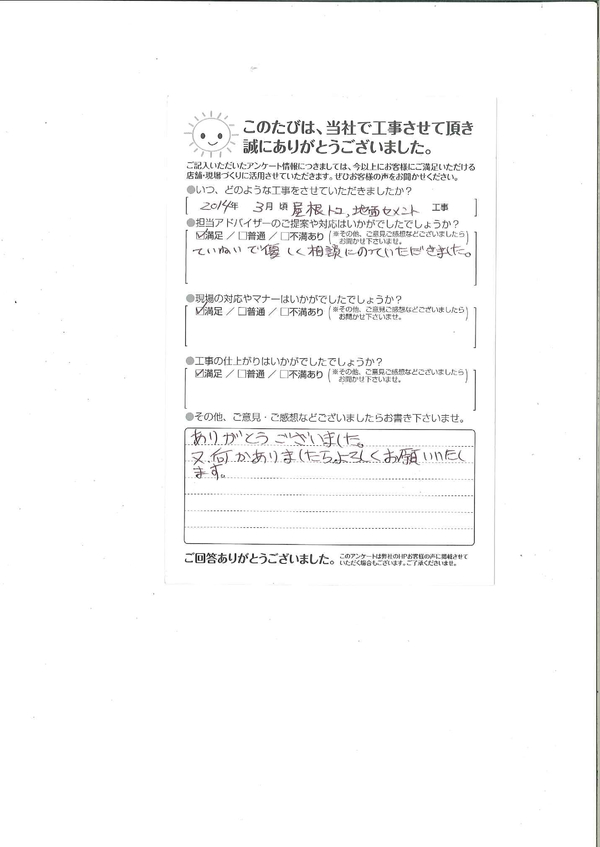 このたびは、当社で工事させて頂き
誠にありがとうございました。
ご記入いただいたアンケート情報につきましては、今以上にお客様にご満足いただける
店舗・現場づくりに活用させていただきます。ぜひお客様の声をお聞かせください。
●いつ、どのような工事をさせていただきましたか?
2014年 3月頃 屋根トユ、地面セメント 工事
●担当アドバイザーのご提案や対応はいかがでしたでしょうか?
☑満足 / □普通 / □不満あり (※その他、ご意見ご感想などございましたらお聞かせ下さいませ。)
ていねいで優しく相談にのていただきました。
●現場の対応やマナーはいかがでしたでしょうか?
☑満足 / □普通 / □不満あり (※その他、ご意見ご感想などございましたらお聞かせ下さいませ。)
●工事の仕上がりはいかがでしたでしょうか?
☑満足 / □普通 / □不満あり (※その他、ご意見ご感想などございましたらお聞かせ下さいませ。)
●その他、ご意見・ご感想などございましたらお書き下さいませ。
ありがとうございました。
又何かありましたらよろしくお願いいたし
ます。
ご回答ありがとうございました。
このアンケートは弊社のHPお客様の声に掲載させて
いただく場合もございます。ご了承くださいませ。